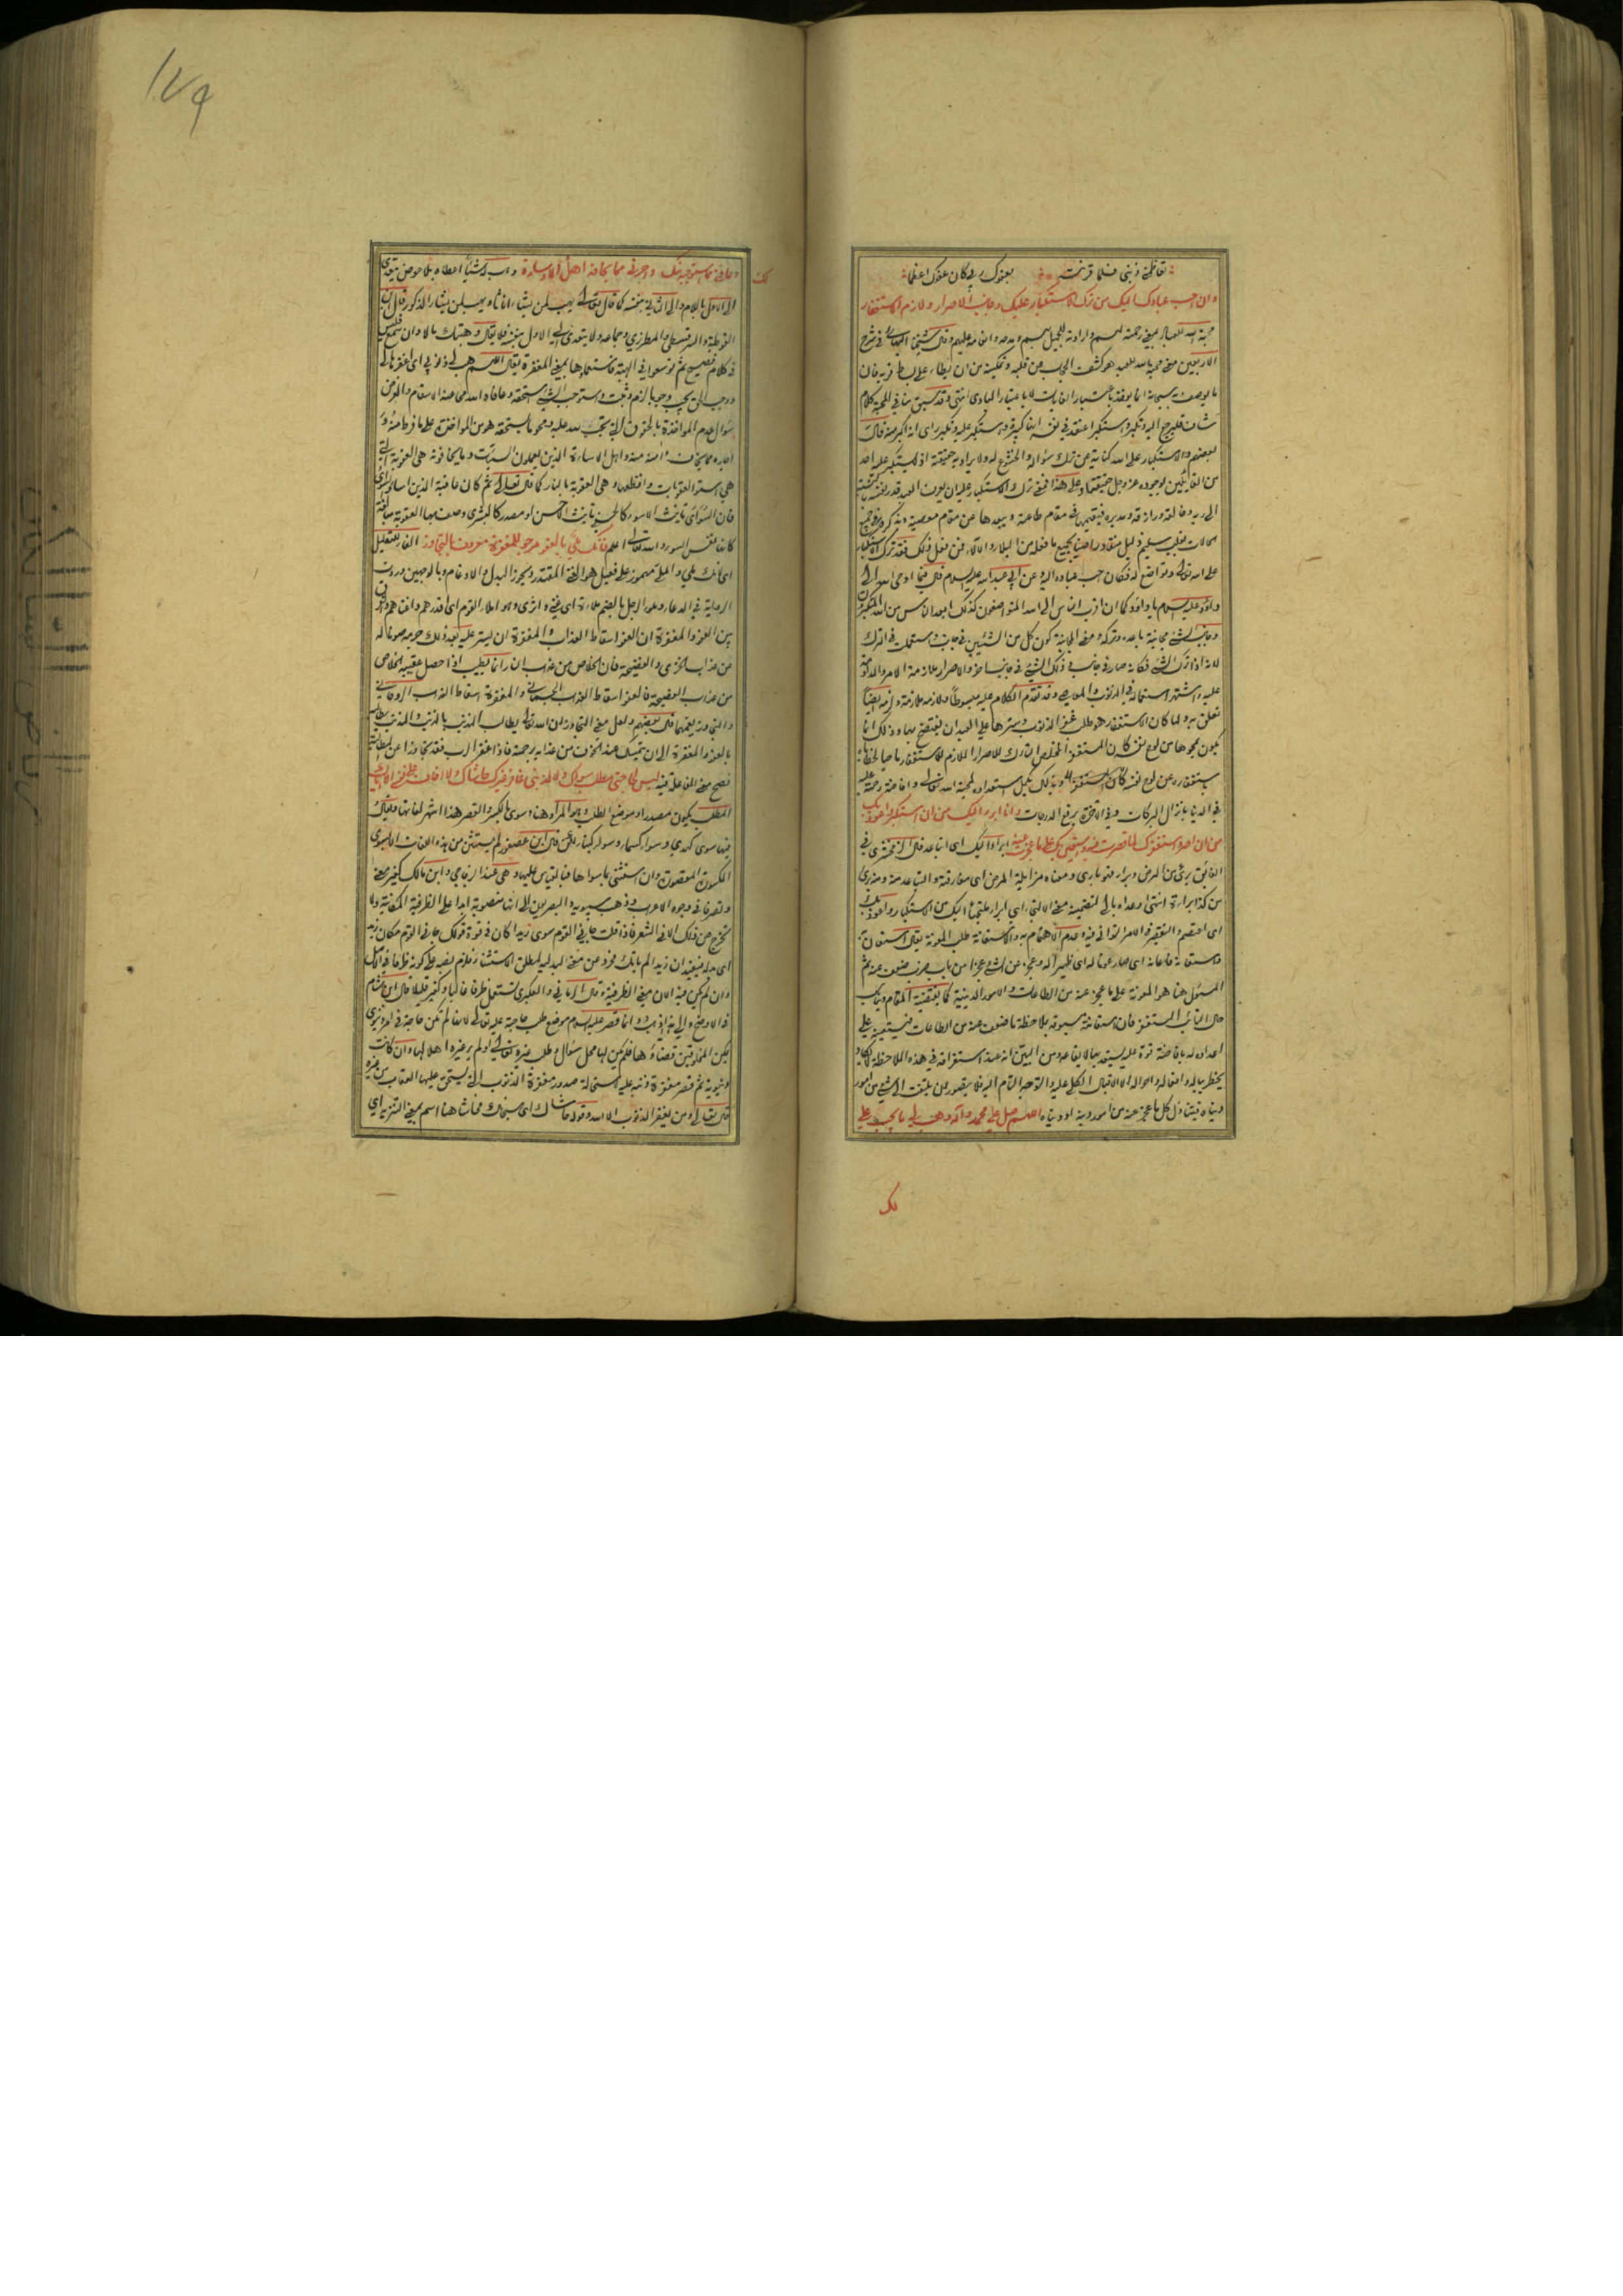 تعاظمني ذنبي فلما قرنته بعفوك ربي كان عفوك اعظما
وان احب عبادك اليك من ترك الاستكبار عليك وجانب الاصرار ولزم الاستغفار
محبة الله للعباد بمعنى رحمته لهم وارادته للجميل بهم ومدحه وانعامه عليهم وقال شيخنا البهائي في شرح
الاربعين معنى محبة الله للعبد هو كشف الحجاب عن قلبه وتمكينه من ان يطأ على بساط قربه فان
ما يوصف به سبحانه انما يؤخذ باعتبار الغايات لا باعتبار المبادي انتهى وقد سبق منا في المحبة كلام
لبعضهم والاستكبار على الله كناية عن ترك سؤاله والخشوع له ولا يراد به حقيقته اذ لا يستكبر عليه احد
من القائلين بوجوده عز وجل حقيقة وعلى هذا فمعنى ترك الاستكبار عليه ان يعرف العبد قدر نفسه
الى ربه وخالقه ورازقه ومدبره فيقيمها في مقام طاعته ويبعدها عن مقام معصيته
بقلب سليم ذليل منقاد راضيا بجميع ما فعله من البلاء والآلاء فمن فعل ذلك فقد ترك الاستكبار
على الله تعالى وتواضع له فكان احب عباده اليه وعن ابي عبد الله عليه السلام قال فيما اوحى الله الى
داود عليه السلام يا داود كما ان اقرب الناس الى الله المتواضعون كذلك ابعد الناس من الله المتكبرون
وجانب الشيء مجانبة باعده وتركه ومعنى المجانبة كون كل من الشيئين في جانب واستعملت في الترك
لانه اذا ترك الشيء فكانه صار في جانب وذلك الشيء في جانب اخر والاصرار ملازمة الامر والمداومة
عليه واشتهر استعماله في الذنوب والمعاصي وقد تقدم الكلام عليه مبسوطا ولازمه ملازمة ولزمه ايضا
تعلق به ولما كان الاستغفار هو طلب غفر الذنوب وسترها على العبد ان يفتضح بها وذلك انما
يكون بمحوها من لوح نفسه كان المستغفر المخلص التارك للاصرار اللازم للاستغفار ماحيا لخطاياه
باستغفاره عن لوح نفسه وبذلك يكمل استعداده لمحبة الله تعالى وافاضة رحمته عليه
في الدنيا بانزال البركات وفي الاخرة برفع الدرجات وانا ابرء اليك من ان استكبر واعوذ بك
من ان اصر واستغفرك لما قصرت فيه واستعين بك على ما عجزت عنه ابرأ اليك اي اتباعد قال الزمخشري في
الفائق برئ من المرض وبرأ فهو بارئ ومعناه مزايلة المرض اي مفارقته والتباعد منه ومنه برئ
من كذا براءة انتهى وعداه بالى لتضمينه معنى الالتجاء اي ابرأ ملتجئا اليك من الاستكبار واعوذ بك
اي اعتصم والتقصير في الامر التواني فيه وعدم الاهتمام به والاستعانة طلب المعونة يقال استعان به
واستعانه فاعانه اي صار عونا له اي ظهيرا له وعجز عن الشيء عجزا من باب ضرب ضعف عنه ثم
المسئول هنا هو المعونة على ما عجز عنه من الطاعات والامور الدينية كما يقتضيه المقام ويناسب
حال التائب المستغفر فان استعانته مسبوقة بملاحظة ما ضعف عنه من الطاعات فيستعينه على
امداده له بافاضة قوة عليه يستعد بها لايقاعه ومن البين انه عند استغراقه في هذه الملاحظة لا يكاد
يخطر بباله وافعاله واحواله الا الاقبال بكله عليه والتوجه التام اليه فلا يتصور من يلتفت الى شيء من امور
دنياه فيتناول كل ما عجز عنه من امور دينه او دنياه اللهم صل على محمد وآله وهب لي ما يجب علي
لك
١٧٩
لك
وعافني مما استوجبه منك واجرني مما يخافه اهل الاساءة وهب لك شيئا اعطاه بلا عوض يتعدى
الى الاول باللام والى الثاني بنفسه كما قال تعالى يهب لمن يشاء اناثا ويهب لمن يشاء الذكور قال ابن
القوطية والسرقسطي والمطرزي وجماعة ولا يتعدى الى الاول بنفسه فلا يقال وهبتك مالا وان
في كلام فصيح ثم توسعوا في الهبة فاستعملوها بمعنى المغفرة يقال اللهم هب لي ذنوبي اي اغفرها لي
ووجب الحق يجب وجوبا لزم وثبت واستوجب الشيء استحقه وعافاه الله محا عنه الاسقام والغرض
سؤال عدم المؤاخذة بالحقوق التي تجب لله عليه ومحو ما يستحقه من المؤاخذة على ما فرط منه
اجاره مما يخاف وآمنه منه واهل الاساءة الذين يعملون السيئات وما يخافونه هي العقوبة التي
هي اسوء العقوبات وافظعها وهي العقوبة بالنار كما قال تعالى ثم كان عاقبة الذين اساؤا السوأى
فان السوأى تانيث الاسوء كالحسنى تانيث الاحسن او مصدر كالبشرى وصف بها العقوبة مبالغة
كانها نفس السوء والله تعالى اعلم فانك ملي بالعفو مرجو للمغفرة معروف بالتجاوز الفاء للتعليل
اي لانك ملي والملي مهموز على فعيل هو الغني المقتدر ويجوز البدل والادغام وبالوجهين وردت
الرواية في الدعاء وملؤ الرجل بالضم ملاءة اي غني واثرى وهو املأ القوم اي اقدرهم واغناهم والفرق
بين العفو والمغفرة ان العفو اسقاط العذاب والمغفرة ان يستر عليه بعد ذلك جرمه صونا له
عن عذاب الخزي والفضيحة فان الخلاص من عذاب النار انما يطيب اذا حصل عقيبه الخلاص
من عذاب الفضيحة فالعفو اسقاط العذاب الجسماني والمغفرة اسقاط العذاب الروحاني
والتجاوز يعمهما قال بعضهم ولعل معنى التجاوز ان الله تعالى يطالب المذنب بالذنب والمذنب يطالبه
بالعفو والمغفرة الى ان يتمسك عند الخوف من عذابه برحمته فاذا غفر الرب فقد تجاوزا عن المطالبة
فصح معنى المفاعلة فيه ليس لحاجتي مطلب سواك ولا لذنبي غافر غيرك حاشاك ولا اخاف على نفسي الا اياك
المطلب يكون مصدرا وموضع الطلب وهو المراد هنا وسوى بالكسر والقصر هذا اشهر لغاتها ويقال
فيها سوى كهدى وسواء كسماء وسواء كبناء قال ابن عصفور لم يستثن من هذه اللغات الا بسوى
المكسورة المقصورة وان استثنى بما سواها فبالقياس عليها وهي عند الزجاجي وابن مالك كغير معنى
وتصرفا في وجوه الاعراب وذهب سيبويه والبصريين الى انها منصوبة ابدا على الظرفية المكانية ولا
تخرج عن ذلك الا في الشعر فاذا قلت جاءني القوم سوى زيدا كان في قوة قولك جاءني القوم مكان زيد
اي بدله فيفيد ان زيدا لم ياتك مجرد عن معنى البدلية لمطلق الاستثناء فلزم نصبه على كونه ظرفا في الاصل
وان لم يكن فيه الان معنى الظرفية وقال الرماني والعكبري تستعمل ظرفا غالبا وكغير قليلا قال ابن هشام
في الاوضح والى هذا اذهب وانما قصر عليه السلام موضع طلب حاجته عليه تعالى لانها لم تكن حاجة في امر دنيوي
يمكن المخلوقين قضاؤها فلم يكن لها محل سؤال وطلب غيره تعالى او لم ير غيره اهلا لها وان كانت
دنيوية ثم قصر مغفرة ذنبه عليه لاستحالة صدور مغفرة الذنوب التي يستحق عليها العقاب من غيره
قال تعالى ومن يغفر الذنوب الا الله وقوله حاشاك اي سبحانك فحاش هنا اسم بمعنى التنزيه اي